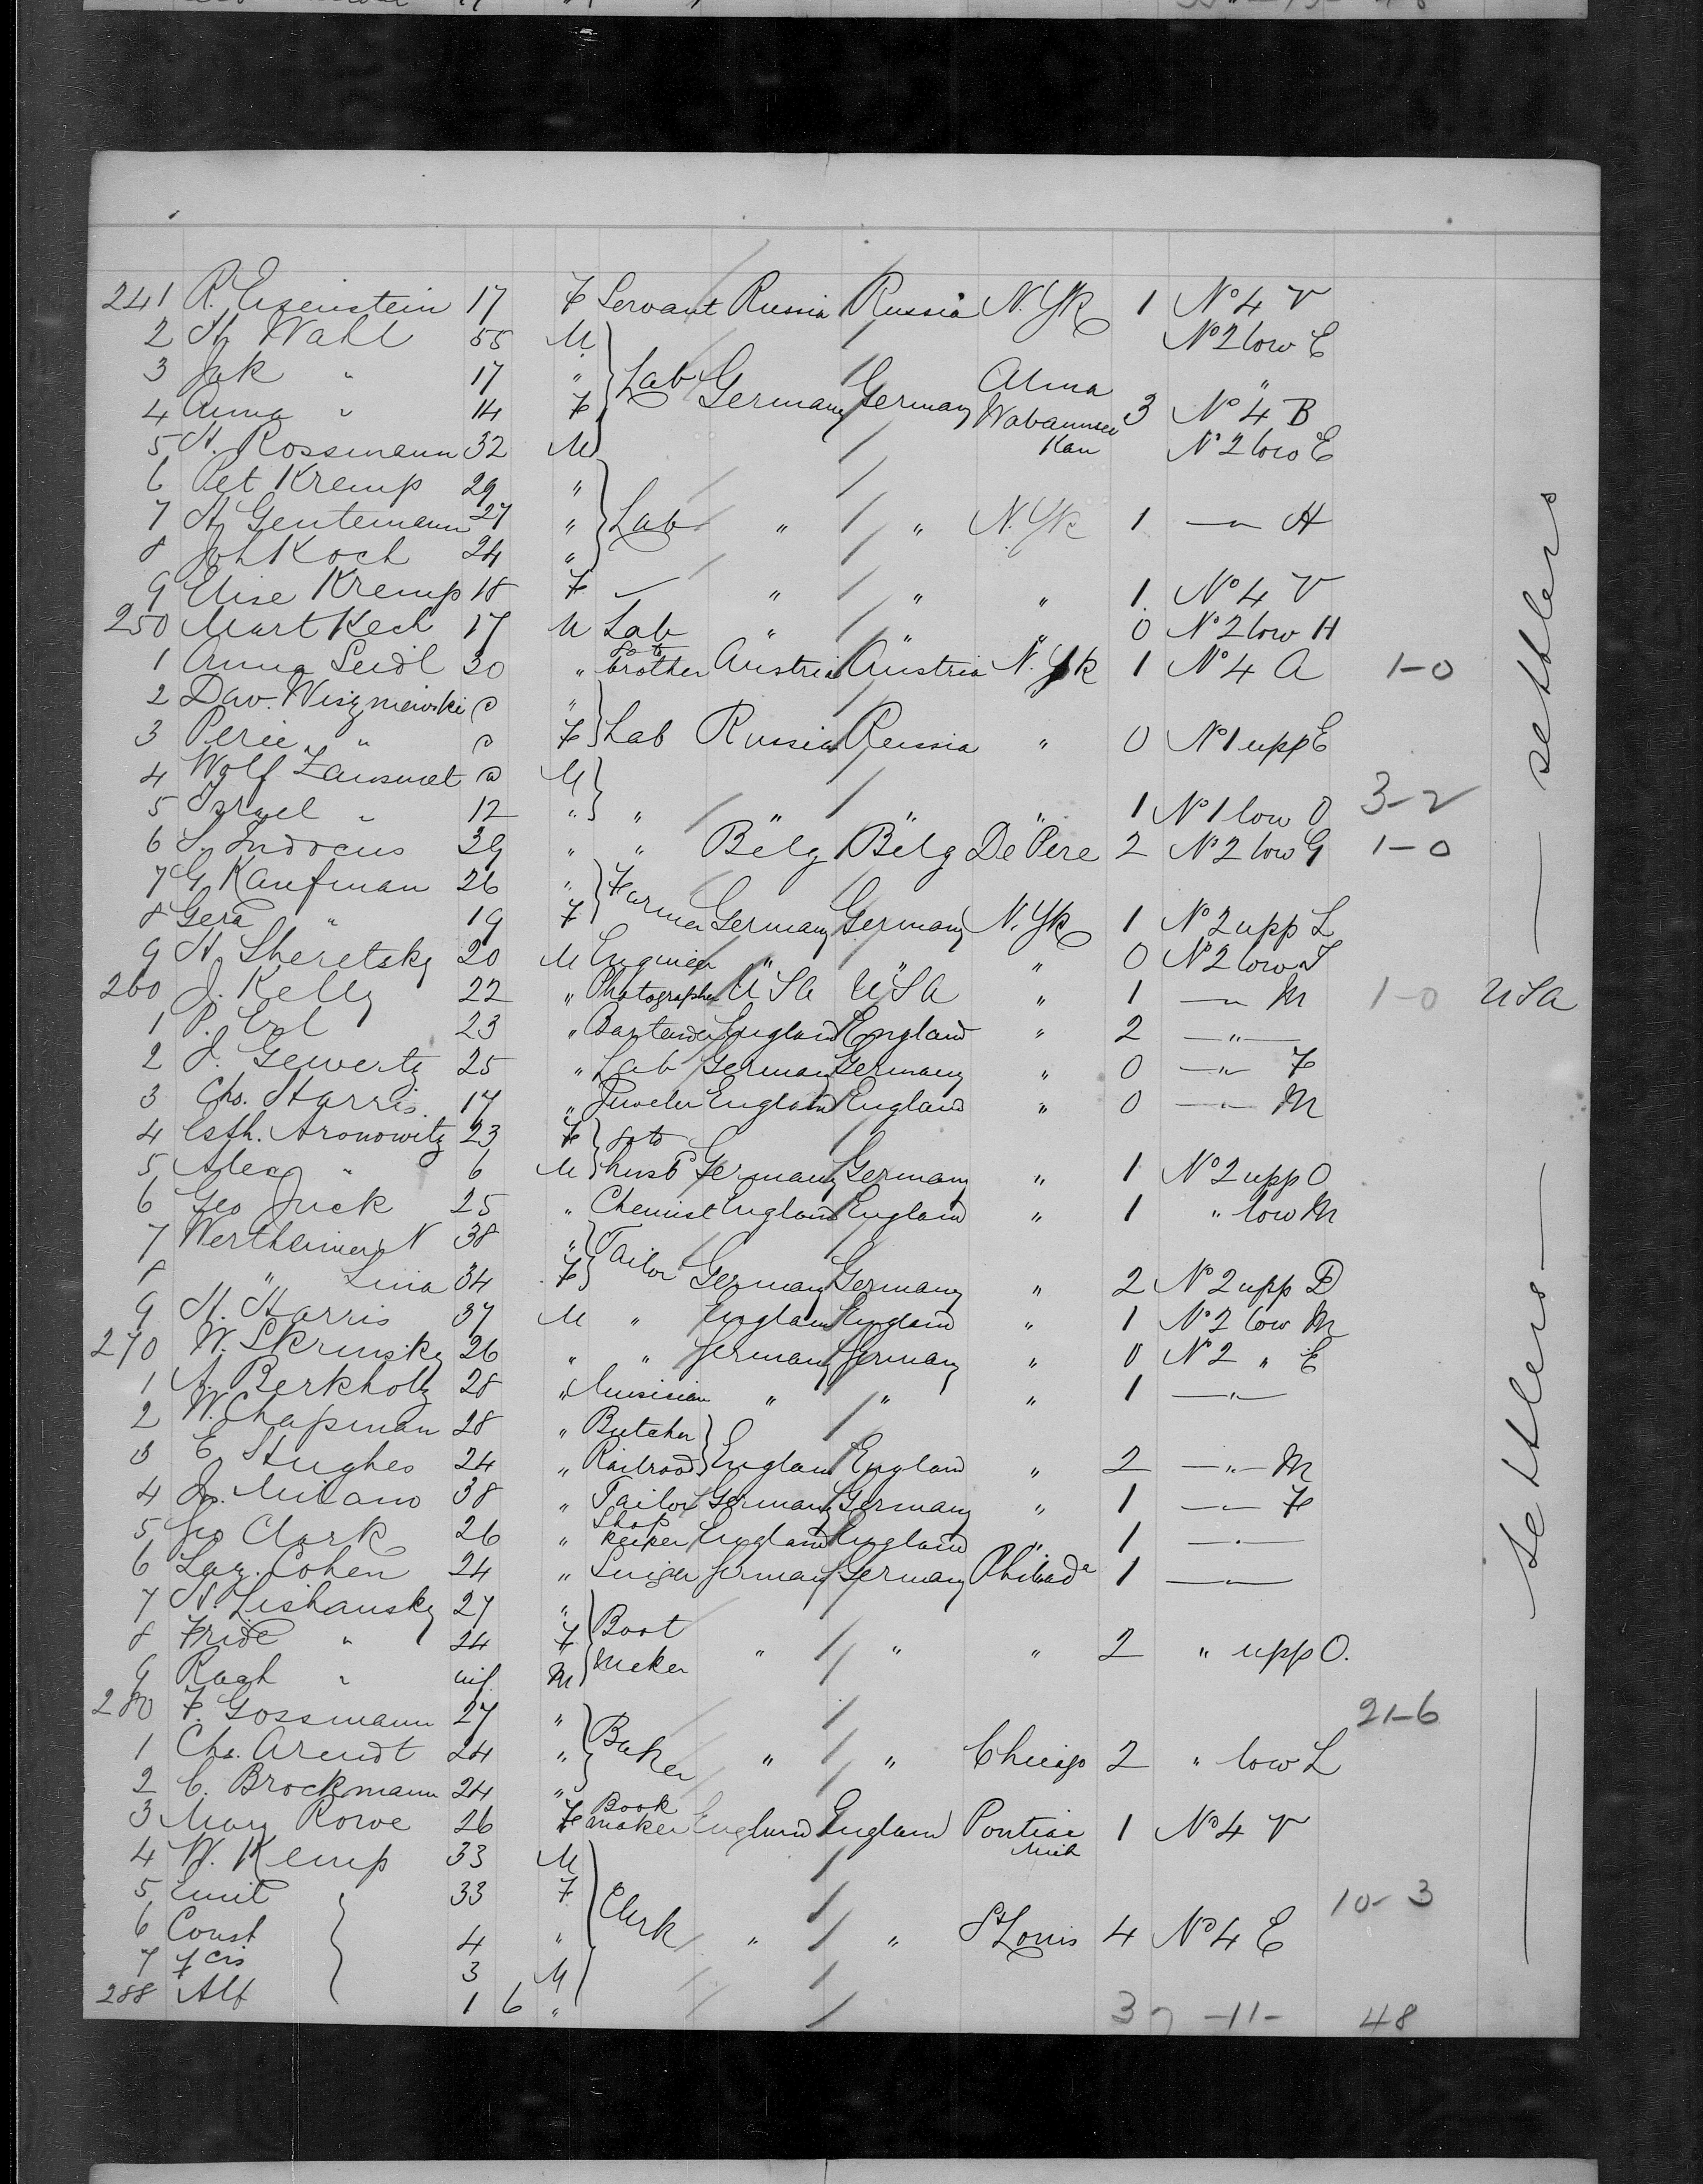 241 R. Eisenstein 17 F Servant Russia Russia N.Yk 1 No 4 V
2 H Wahl 55 M No 2 low E
3 Jak " 17 " Lab Germany Germany Alma "
4 Anna " 14 F Wabaunsee 3 No 4 B
5 H. Rossmann 32 M Kan No 2 low E
6 Pet Kremp 29 "
7 H Gentemann 27 " Lab " " N.Yk 1 —"— H
8 Joh Koch 24 "
9 Elise Kremp 18 F — " " " 1 No 4 V
250 Mart Kech 17 M Lab " " " 0 No 2 low H
1 Anna Seidl 30 " go to brother Austria Austria N.Yk 1 No 4 A 1-0
2 Dav. Wiszniewski "
3 Perie " F Lab Russia Russia " 0 No 1 upp E
4 Wolf M
5 Israel " 12 " " " " " 1 No 1 low O 3-2
6 39 " " Belg Belg De Pere 2 No 2 low G 1-0
7 G Kaufman 26 " Farmer
8 Gera " 19 F Germany Germany N.Yk 1 No 2 upp L
9 H Sheretsky 20 M Engineer " " " 0 No 2 low
260 J. Kelly 22 " Photographer USA USA " 1 —"— M 1-0 USA
1 P. 23 " Bartender England England " 2 —"—
2 J. Gewertz 25 " Lab Germany Germany " 0 —"— F
3 Chs. Harris 17 " Jeweler England England " 0 —"— M
4 Esth. Aronowitz 23 F go to
5 Alex " 6 M husbd Germany Germany " 1 No 2 upp O
6 Geo Juck 25 " Chemist England England " 1 " low M
7 Wertheimer N 38 " Tailor
8 " Lina 34 F Germany Germany " 2 No 2 upp D
9 H. Harris 37 M " England England " 1 No 2 low M
270 W. Skrinsky 26 " " Germany Germany " 0 No 2 " E
1 A. Berkholz 28 " Musician " " " 1 —"—
2 W. Chapman 28 " Butcher
3 E. Hughes 24 " Railroad England England " 2 —"— M
4 Milano 38 " Tailor Germany Germany " 1 —"— F
5 Clark 26 " Shop keeper England England " 1 —"—
6 Laz. Cohen 24 " Germany Germany Philada 1 —"—
7 H. Lishansky 27 " Boot
8 Fride " 24 F maker " " " 2 " upp O.
9 " inf. M
280 F. Gossmann 27 " 21-6
1 Chs. Arendt 24 " Baker " " Chicago 2 " low L
2 C. Brockmann 24 "
3 Mary Rowe 26 F Book maker England England Pontiac Mich 1 No 4 V
4 W. Kemp 33 M
5 Emil 33 F 10-3
6 Const 4 " Clerk " " St Louis 4 No 4 E
7 3 M
288 Alf 1 6 " 37 -11- 48
— settlers —
— settlers —